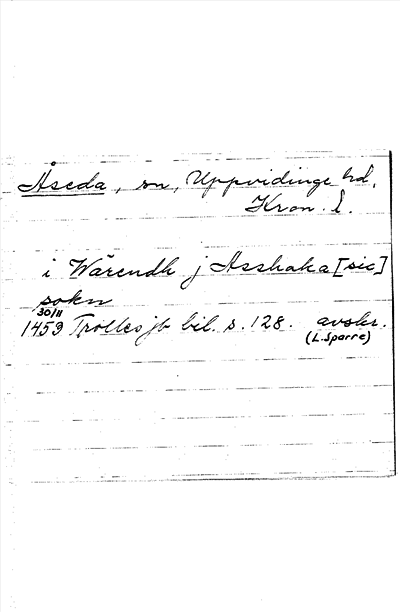 Åseda, sn, Uppvidinge hd,
Kron. l.
i Wärendh j Asshaka [sic]
sokn
30/11
1459 Trolles jb bil. s. 128. avskr.
(L. Sparre)